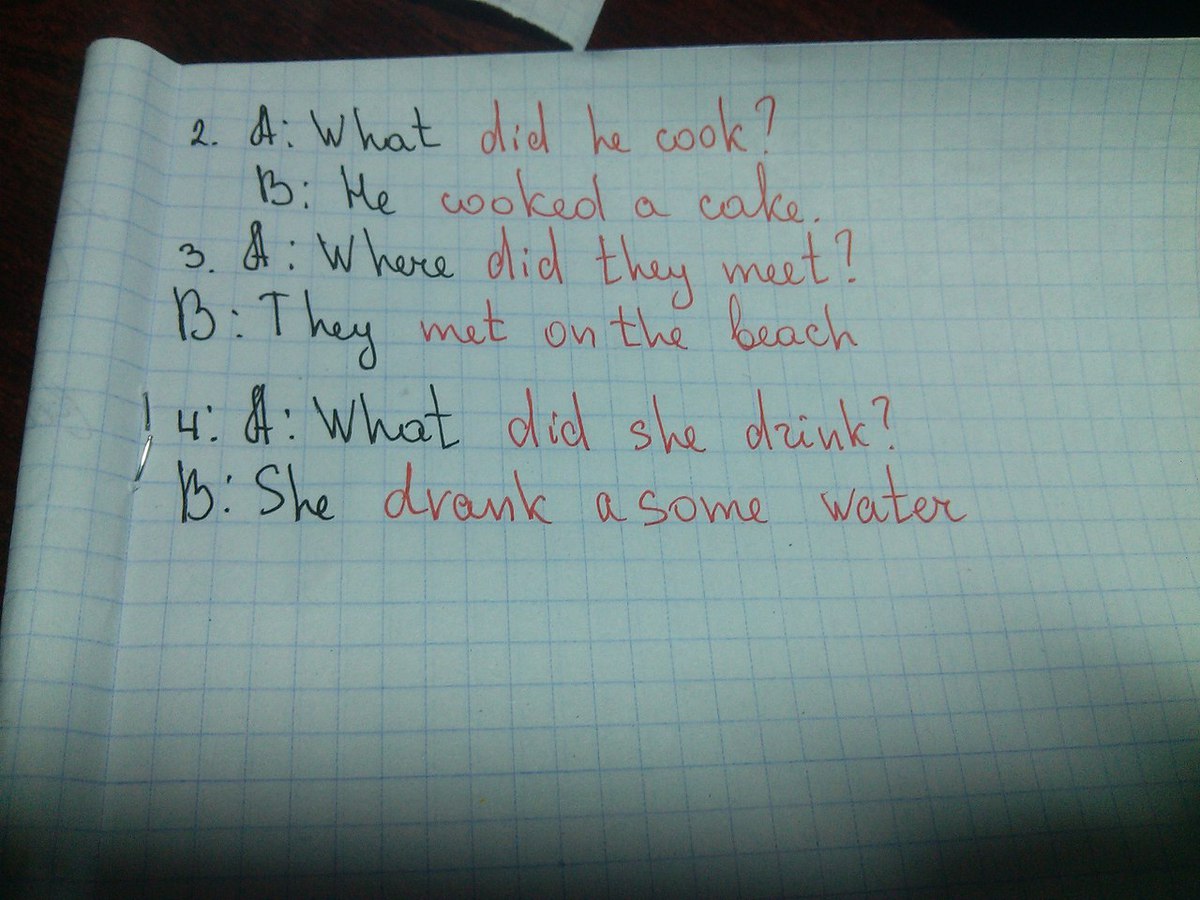 2. A: What did he cook?
B: He cooked a cake.
3. A: Where did they meet?
B: They met on the beach
! 4: A: What did she drink?
B: She drank a some water